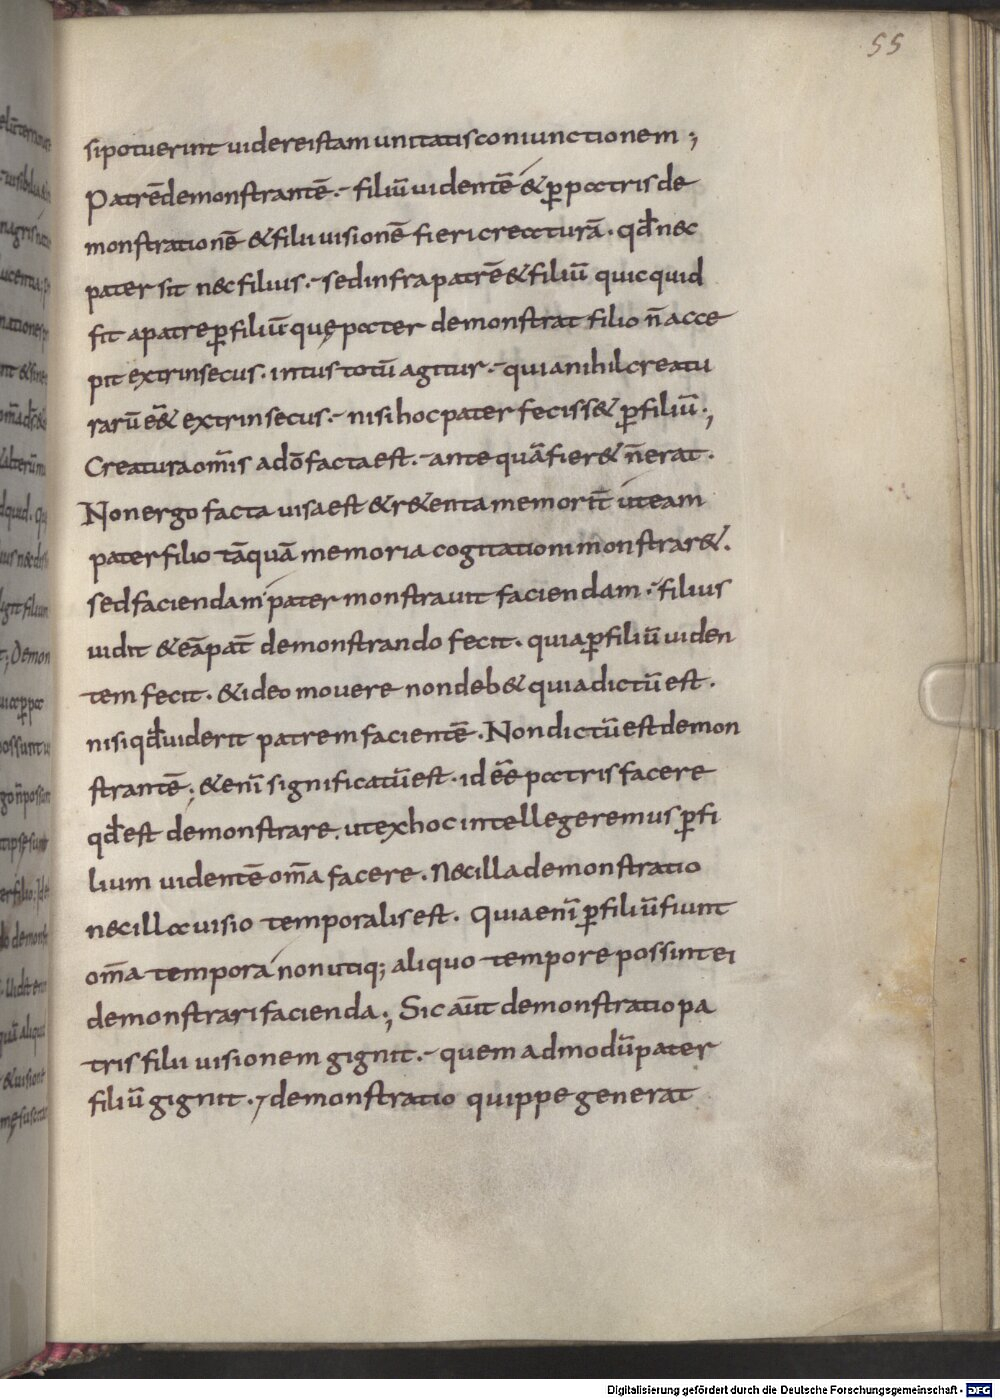 55
sipotuerint uidereistam unitatisconiunctionem ;
Patrē demonstrantē .- filiū uidentē & ꝑ patris de
monstrationē & filii uisionē fieri creaturā . qd̄ nec
pater sit nec filius .- sed infra patrē & filiū quicquid
fit a patre ꝑ filiū quę pater demonstrat filio n̄ acce
pit extrinsecus . intus totū agitur .- quia nihil creatu
rarū eē& extrinsecus .- nisi hoc pater feciss& ꝑ filiū .,
Creatura om̄is a dō facta est .- ante quā fier& n̄ erat .
Non ergo facta uisa est & r&enta memorit̄ ut eam
pater filio tāquā memoria cogitationi monstrar& .
sed faciendam pater monstrauit faciendam .- filius
uidit & eā pat̄ demonstrando fecit . quia ꝑ filiū uiden
tem fecit . & ideo mouere non deb& quia dictū est .
nisi qd̄ uiderit patrem facientē . Non dictū est demon
strantē ; & enī significatū est . id eē patris facere
qd̄ est demonstrare . ut ex hoc intellegeremus ꝑ fi
lium uidentē om̄a facere . Nec illa demonstratio
nec illa uisio temporalis est . Quia enī ꝑ filiū fiunt
om̄a tempora non utiq; aliquo tempore possint ei
demonstrari facienda ., Sic aūt demonstratio pa
tris filii uisionem gignit .- quem ad modū pater
filiū gignit .- demonstratio quippe generat
Digitalisierung gefördert durch die Deutsche Forschungsgemeinschaft - DFG